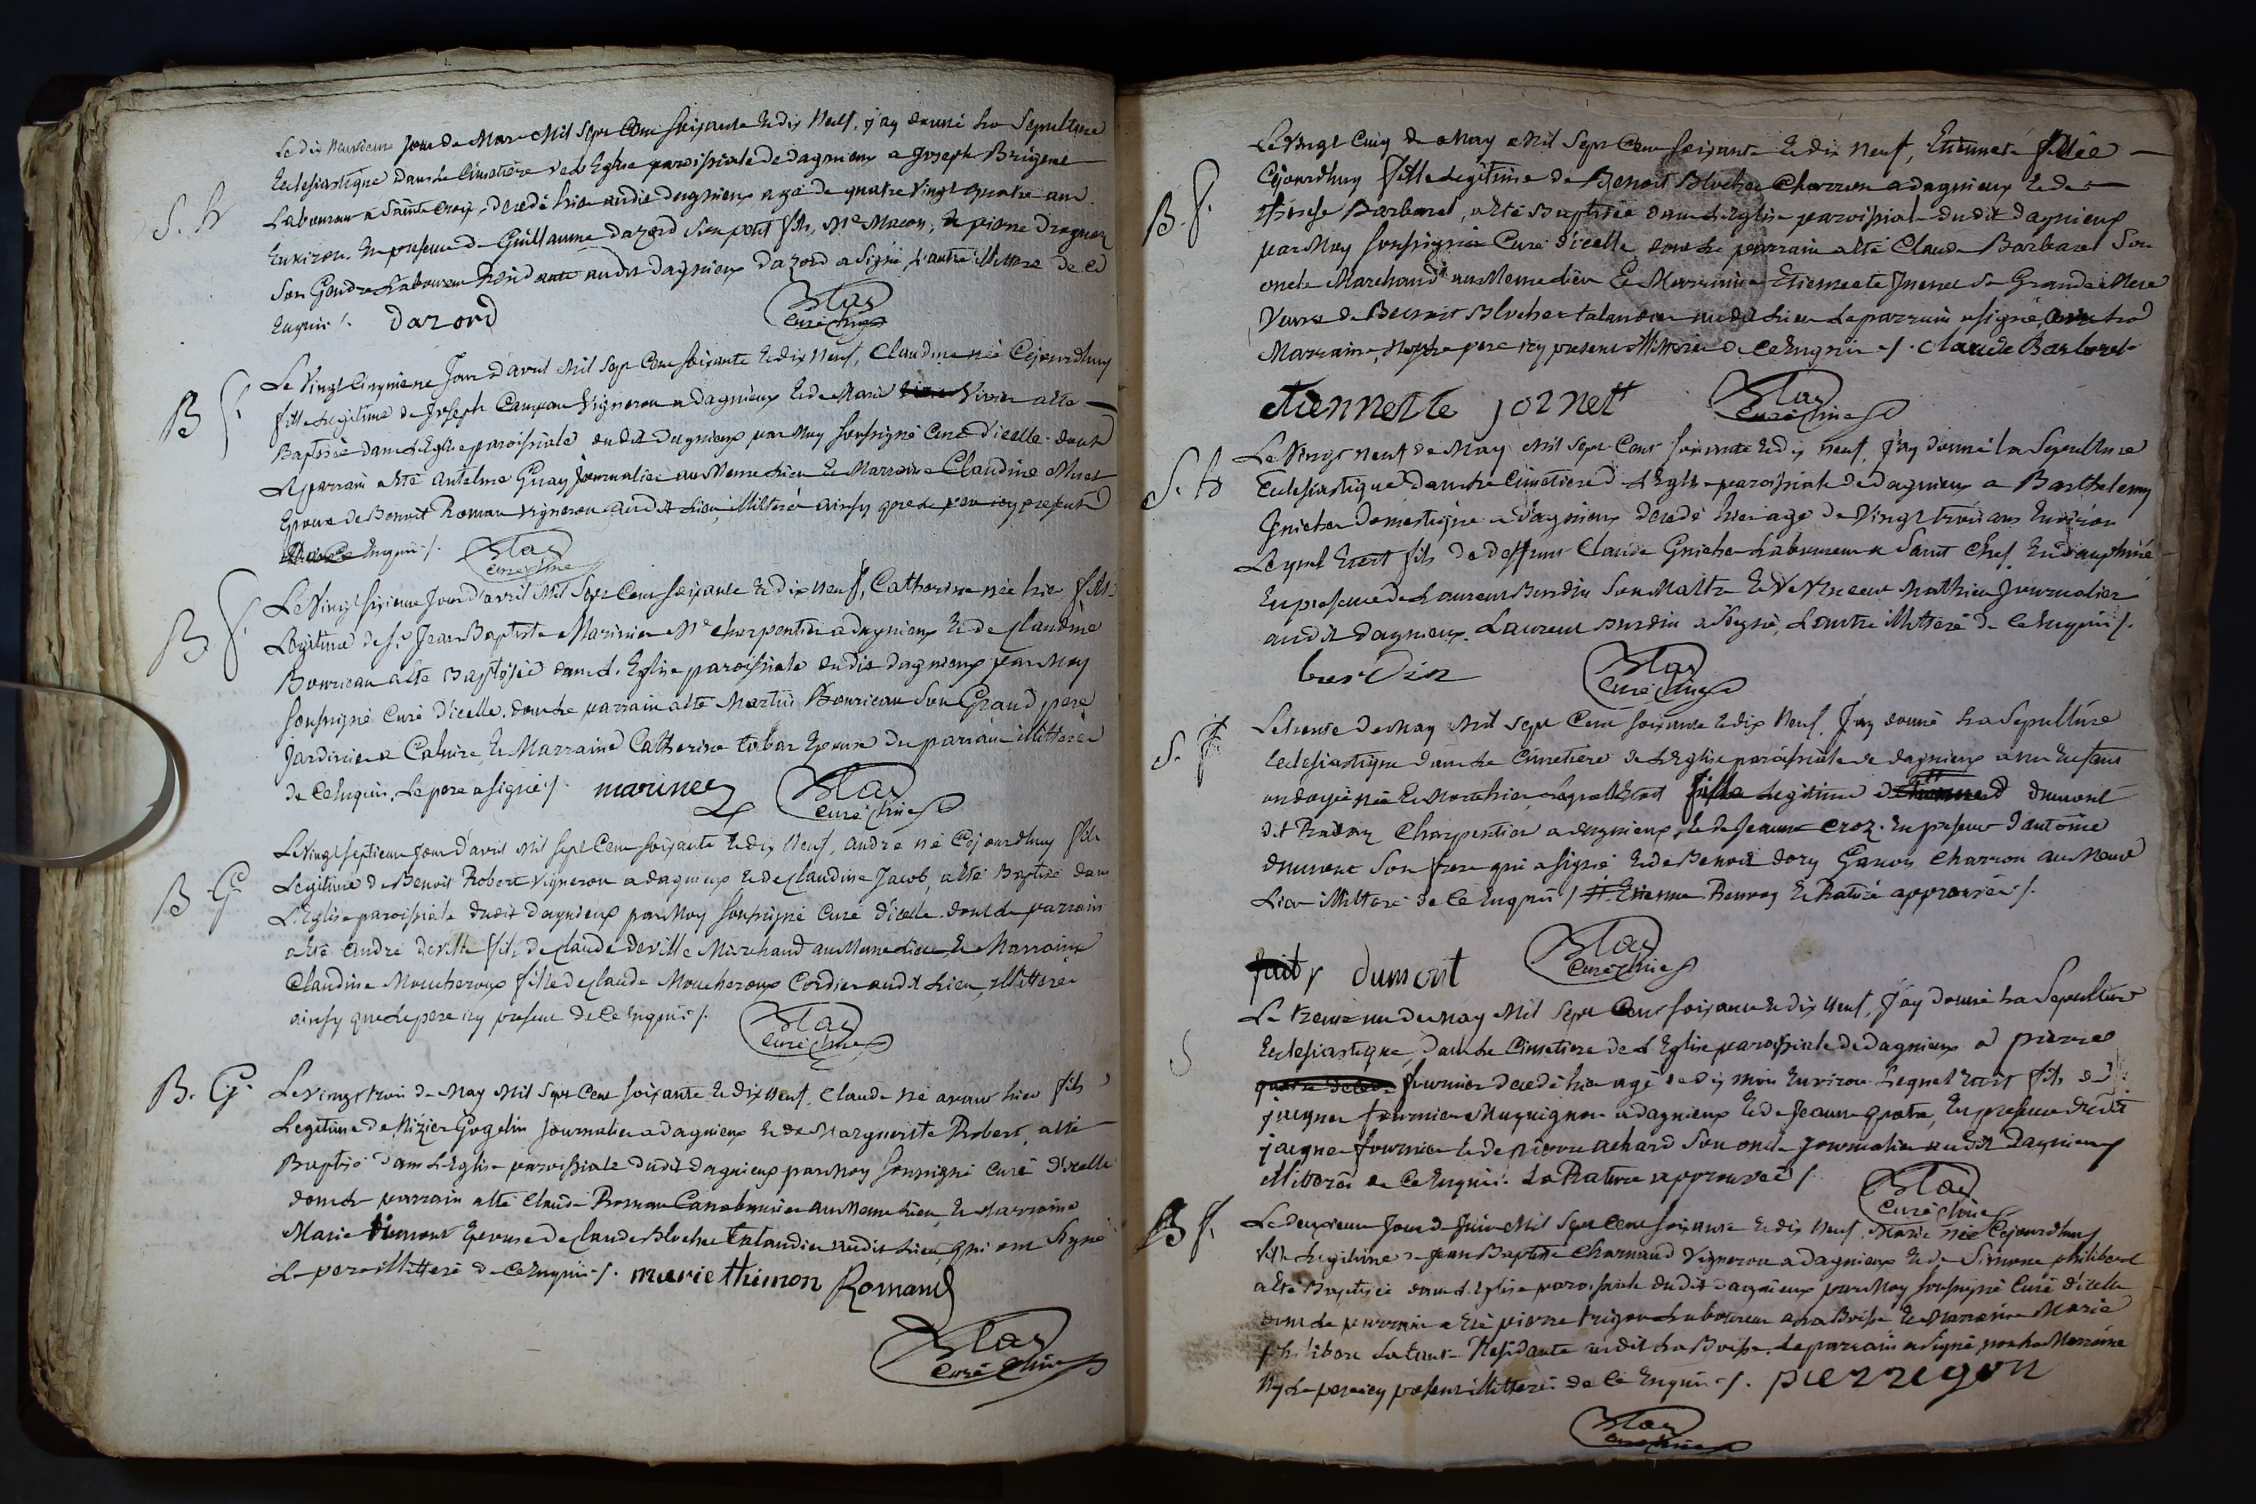 Le dix neuvieme jour de Mars Mil Sept Cent soixante et dix Neuf, j'ay donné La Sepulture
S. h Ecclesiastique dans le Cimetière de L'Eglise paroissiale de dagnieux a Joseph Brigene
Laboureur a Sainte Croix, decedé hier audit dagnieux agé de quatre vingt quatre ans
Environ. En presence de Guillaume dazord Son petit fils, Me Macon, et pierre
Son Gendre Laboureur audit dagnieux dazord a Signé, L'autre illitteré de ce
Enquis /. dazord Curé
Le Vingt Cinquieme Jour d'avril Mil Sept Cent soixante et dix Neuf, Claudine née Cejourdhuy
B f. fille Legitime de Joseph Vigneron a Dagnieux et de Marie Vivier a eté
Baptisée dans L'Eglise paroissiale dudit dagnieux par Moy soussigné Curé d'icelle dont
Le parrain a eté Antelme Guay Journalier au Meme Lieu et Marraine Claudine
Epouse de Benoit Roman Vigneron audit Lieu, illitteré ainsy que le pere icy present
Enquis /. Curé
Le Vingt sixieme Jour d'avril Mil Sept Cent soixante et dix Neuf, Catherine née hier fille
B. f. Legitime de Sr Jean Baptiste Marinier Me Charpentier a dagnieux et de Claudine
Bourrican a eté Baptisée dans L'Eglise paroissiale dudit dagnieux par Moy
soussigné Curé d'icelle, dont Le parrain a eté Martin Bourrican Son Grand pere
Jardinier a Caluire, et Marraine Catherine Epouse du parrain illitterés
de ce Enquis, Le pere a signé /. marinee Curé
Le Vingt septieme Jour d'avril Mil Sept Cent soixante et dix Neuf, André né Cejourdhuy fils
B. G Legitime de Benoit Robert Vigneron a dagnieux et de Claudine Jacob, a eté Baptisé dans
L'Eglise paroissiale dudit dagnieux par Moy soussigné Curé d'icelle, dont Le parrain
a eté André deville fils de Claude deville Marchand au Meme Lieu et Marraine
Claudine Moucheroux fille de Claude Moucheroux Cordier audit Lieu, illitterés
ainsy que Le pere icy present de Ce Enquis /. Curé
B. G. Le Vingt trois de May Mil Sept Cent soixante et dix Neuf, Claude né avant hier fils
Legitime de Nizier Gogelin Journalier a dagnieux et de Marguerite Robert, a eté
Baptisé dans L'Eglise paroissiale dudit dagnieux par Moy soussigné Curé d'icelle
dont Le parrain a eté Claude Roman au Meme Lieu, et Marraine
Marie Epouse de Claude Blochet talandier audit Lieu, qui ont Signé
Le pere illitteré de Ce Enquis /. marie thimon Romand
Curé
Le Vingt Cinq de May Mil Sept Cent soixante et dix Neuf, Etiennete Née
B. f. Cejourdhuy fille Legitime de Benoit Blochet Charron a dagnieux et de
therese Barbaret, a eté Baptisée dans L'Eglise paroissiale dudit dagnieux
par Moy soussigné Curé d'icelle dont Le parrain a eté Claude Barbaret Son
oncle Marchand au Meme Lieu et Marraine Etiennete Sa Grande Mere
Veuve de Benoit Blochet talandier audit Lieu Le parrain a signé, avec La
Marraine, Non Le pere icy present illitteré de Ce Enquis /. claude Barbaret
etiennette jornett Curé
Le Vingt neuf de May Mil Sept Cent soixante et dix Neuf, j'ay donné La Sepulture
S. h Ecclesiastique dans Le Cimetiere de L'Eglise paroissiale de dagnieux a Barthelemy
domestique a dagnieux decedé hier agé de Vingt trois ans Environ
Lequel Etoit fils de deffunt Claude Laboureur a Saint Chef En dauphiné
En presence de Laurent Burdin Son Maitre et de Vincent Mathieu Journalier
audit dagnieux. Laurent Burdin a Signé, L'autre illitteré de Ce Enquis /.
burdin Curé
Le trente de May Mil Sept Cent soixante et dix Neuf, J'ay donné La Sepulture
S. f Ecclesiastique dans Le Cimetiere de L'Eglise paroissiale de dagnieux a un Enfant
ondoyé né Et Mort hier, Lequel Etoit fille Legitime dumont
dit Charpentier a dagnieux, et de Jeanne croz. En presence d'antoine
dumont Son frere qui a signé et de Benoit dory Garçon Charron au Meme
Lieu illitteré de Ce Enquis /. # Etienne Renvoy et Rature approuvés /.
fait dumont Curé
Le trente un de May Mil Sept Cent soixante et dix Neuf, J'ay donné La Sepulture
S Ecclesiastique dans Le Cimetiere de L'Eglise paroissiale de dagnieux a pierre
fournier decedé hier agé de dix mois Environ Lequel Etoit fils de
jacques fournier a dagnieux et de Jeanne quatre, En presence dudit
jacques fournier et de pierre achard Son oncle Journalier audit dagnieux
illitterés de Ce Enquis. La Rature approuvée /. Curé
B f. Le deuxieme Jour de Juin Mil Sept Cent soixante et dix Neuf, Marie née Cejourdhuy
fille Legitime de Jean Baptiste Charnaud Vigneron a Dagnieux et de Simone philibert
a eté Baptisée dans L'Eglise paroissiale dudit dagnieux par Moy soussigné Curé d'icelle
dont Le parrain a eté pierre trigon Laboureur a La Boisse et Marraine Marie
philibert La tante Residante audit La Boisse, Le parrain a Signé, non La Marraine
Ny Le pere icy present illitterés de Ce Enquis /. pierre rigon
Curé